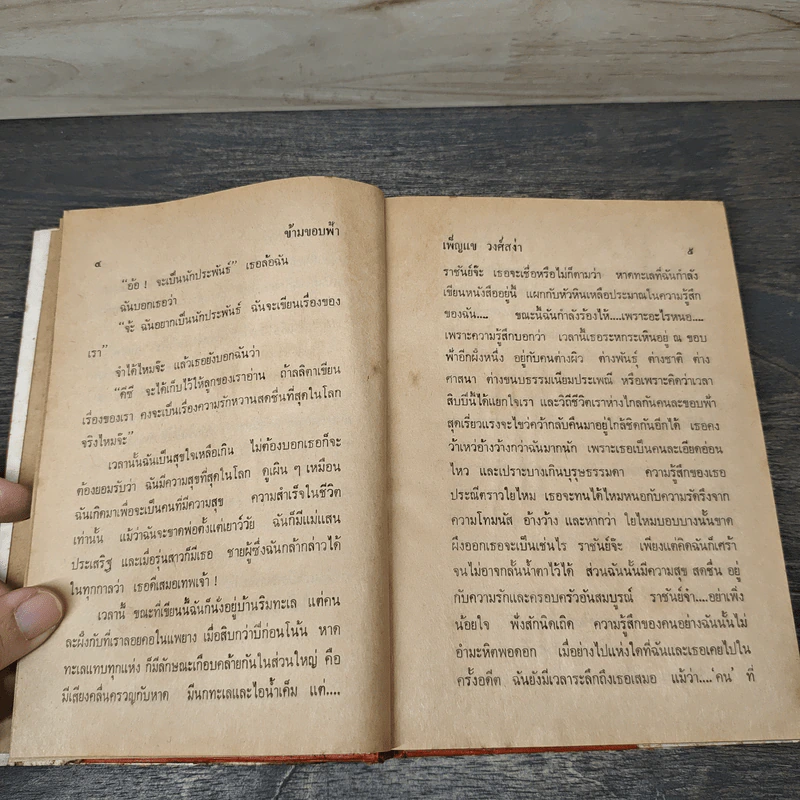 ข้ามขอบฟ้า
๔
“อ้อ ! จะเป็นนักประพันธ์” เธอล้อฉัน
ฉันบอกเธอว่า
“จ้ะ ฉันอยากเป็นนักประพันธ์ ฉันจะเขียนเรื่องของ
เรา”
จำได้ไหมจ๊ะ แล้วเธอยังบอกฉันว่า
“ดีซี จะได้เก็บไว้ให้ลูกของเราอ่าน ถ้าลลิตาเขียน
เรื่องของเรา คงจะเป็นเรื่องความรักหวานสดชื่นที่สุดในโลก
จริงไหมจ๊ะ”
เวลานั้นฉันเป็นสุขใจเหลือเกิน ไม่ต้องบอกเธอก็จะ
ต้องยอมรับว่า ฉันมีความสุขที่สุดในโลก ดูเผิน ๆ เหมือน
ฉันเกิดมาเพื่อจะเป็นคนที่มีความสุข ความสำเร็จในชีวิต
เท่านั้น แม้ว่าฉันจะขาดพ่อตั้งแต่เยาว์วัย ฉันก็มีแม่แสน
ประเสริฐ และเมื่อรุ่นสาวก็มีเธอ ชายผู้ซึ่งฉันกล้ากล่าวได้
ในทุกกาลว่า เธอดีเสมอเทพเจ้า !
เวลานี้ ขณะที่เขียนนี้ฉันก็นั่งอยู่บ้านริมทะเล แต่คน
ละฝั่งกับที่เราลอยคอในแพยาง เมื่อสิบกว่าปีก่อนโน้น หาด
ทะเลแทบทุกแห่ง ก็มีลักษณะเกือบคล้ายกันในส่วนใหญ่ คือ
มีเสียงคลื่นครวญกับหาด มีนกทะเลและไอน้ำเค็ม แต่....
เพ็ญแข วงศ์สง่า
๕
ราชันย์จ๊ะ เธอจะเชื่อหรือไม่ก็ตามว่า หาดทะเลที่ฉันกำลัง
เขียนหนังสืออยู่นี้ แผกกับหัวหินเหลือประมาณในความรู้สึก
ของฉัน.... ขณะนี้ฉันกำลังร้องไห้....เพราะอะไรหนอ....
เพราะความรู้สึกบอกว่า เวลานี้เธอระหกระเหินอยู่ ณ ขอบ
ฟ้าอีกฝั่งหนึ่ง อยู่กับคนต่างผิว ต่างพันธุ์ ต่างชาติ ต่าง
ศาสนา ต่างขนบธรรมเนียมประเพณี หรือเพราะคิดว่าเวลา
สิบปีนี้ได้แยกใจเรา และวิถีชีวิตเราห่างไกลกันคนละขอบฟ้า
สุดเรี่ยวแรงจะไขว่คว้ากลับคืนมาอยู่ใกล้ชิดกันอีกได้ เธอคง
ว้าเหว่อ้างว้างกว่าฉันมากนัก เพราะเธอเป็นคนละเอียดอ่อน
ไหว และเปราะบางเกินบุรุษธรรมดา ความรู้สึกของเธอ
ประณีตราวใยไหม เธอจะทนได้ไหมหนอกับความรัดรึงจาก
ความโทมนัส อ้างว้าง และหากว่า ใยไหมบอบบางนั้นขาด
ผึงออกเธอจะเป็นเช่นไร ราชันย์จ๊ะ เพียงแต่คิดฉันก็เศร้า
จนไม่อาจกลั้นน้ำตาไว้ได้ ส่วนฉันนั้นมีความสุข สดชื่น อยู่
กับความรักและครอบครัวอันสมบูรณ์ ราชันย์จ๋า....อย่าเพิ่ง
น้อยใจ ฟังสักนิดเถิด ความรู้สึกของคนอย่างฉันนั้นไม่
อำมะหิตพอดอก เมื่อย่างไปแห่งใดที่ฉันและเธอเคยไปใน
ครั้งอดีต ฉันยังมีเวลาระลึกถึงเธอเสมอ แม้ว่า....‘คน’ ที่